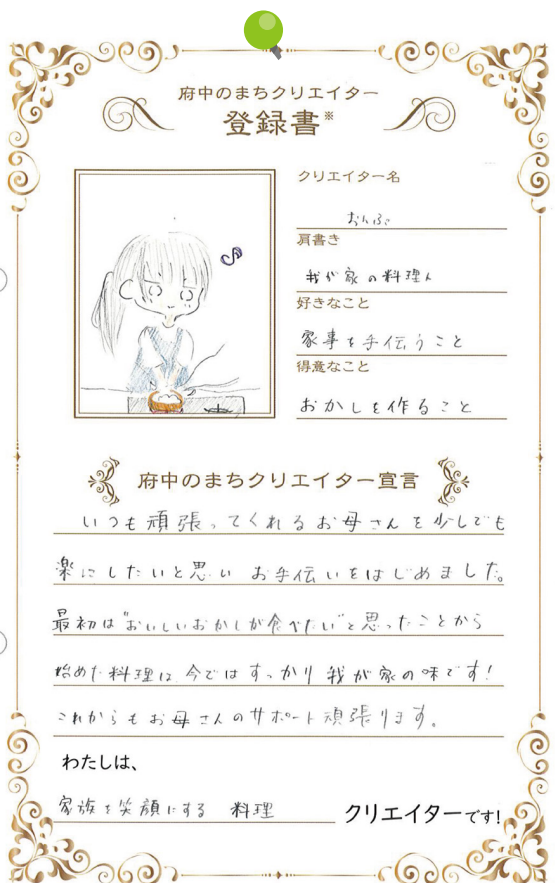 府中のまちクリエイター
登録書※
クリエイター名
おんぷ
肩書き
我が家の料理人
好きなこと
家事を手伝うこと
得意なこと
おかしを作ること
府中のまちクリエイター宣言
いつも頑張ってくれるお母さんを少しでも
楽にしたいと思い お手伝いをはじめました。
最初は"おいしいおかしが食べたい"と思ったことから
始めた料理は今ではすっかり我が家の味です!
これからもお母さんのサポート頑張ります。
わたしは、
家族を笑顔にする 料理 クリエイターです!